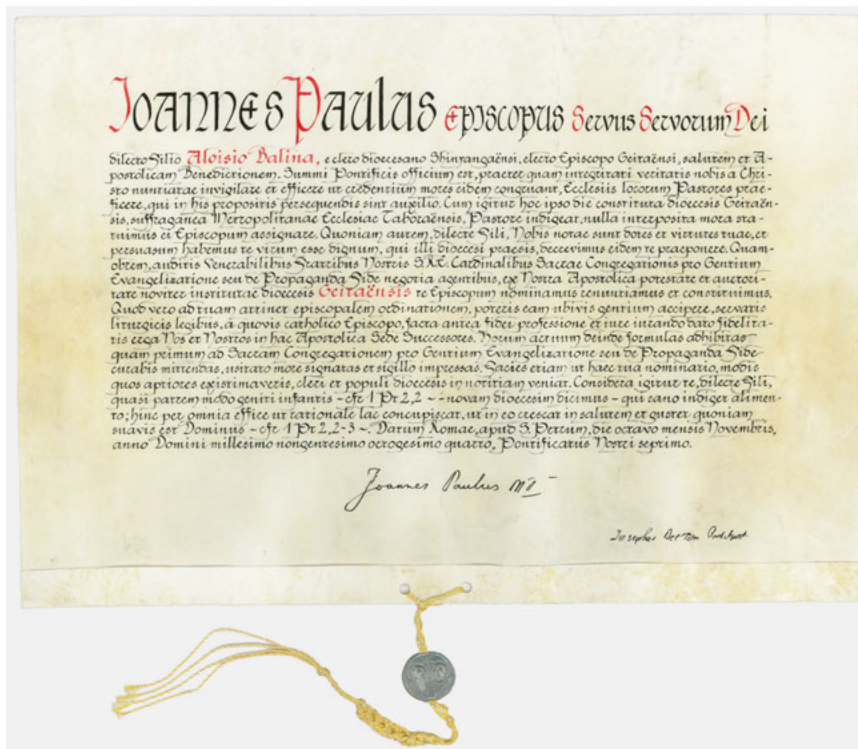 IOANNES PAULUS EPISCOPUS Servus Servorum Dei
dilecto Filio Aloisio Balina, e clero dioecesano Shinyangaënsi, electo Episcopo Geitaënsi, salutem et A-
postolicam Benedictionem. Summi Pontificis officium est, praeter quam integritati veritatis nobis a Chri-
sto nuntiatae invigilare et efficere ut credentium mores eidem congruant, Ecclesiis locorum Pastores prae-
ficere, qui in his propositis persequendis sint auxilio. Cum igitur hoc ipso die constituta dioecesis Geitaën-
sis, suffraganea Metropolitanae Ecclesiae Taboraënsis, Pastore indigeat, nulla interposita mora sta-
tuimus ei Episcopum assignare. Quoniam autem, dilecte Fili, Nobis notae sunt dotes et virtutes tuae, et
persuasum habemus te virum esse dignum, qui illi dioecesi praesis, decrevimus eidem te praeponere. Quam-
obrem, auditis Venerabilibus Fratribus Nostris S.R.E. Cardinalibus Sacrae Congregationis pro Gentium
Evangelizatione seu de Propaganda Fide negotia agentibus, ex Nostra Apostolica potestate et auctori-
tate noviter institutae dioecesis Geitaënsis te Episcopum nominamus renuntiamus et constituimus.
Quod vero ad tuam attinet episcopalem ordinationem, poteris eam ubivis gentium accipere, servatis
liturgicis legibus, a quovis catholico Episcopo, facta antea fidei professione et iure iurando dato fidelita-
tis erga Nos et Nostros in hac Apostolica Sede Successores. Horum actuum deinde formulas adhibitas
quam primum ad Sacram Congregationem pro Gentium Evangelizatione seu de Propaganda Fide
curabis mittendas, usitato more signatas et sigillo impressas. Facies etiam ut haec tua nominatio, modis
quos aptiores existimaveris, cleri et populi dioecesis in notitiam veniat. Considera igitur te, dilecte Fili,
quasi partem modo geniti infantis - cfr 1 Pt 2,2 - - novam dioecesim dicimus - qui sano indiget alimen-
to; hinc per omnia effice ut rationale lac concupiscat, ut in eo crescat in salutem et gustet quoniam
suavis est Dominus - cfr 1 Pt 2,2-3 -. Datum Romae, apud S. Petrum, die octavo mensis Novembris,
anno Domini millesimo nongentesimo octogesimo quarto, Pontificatus Nostri septimo.
Joannes Paulus PP II